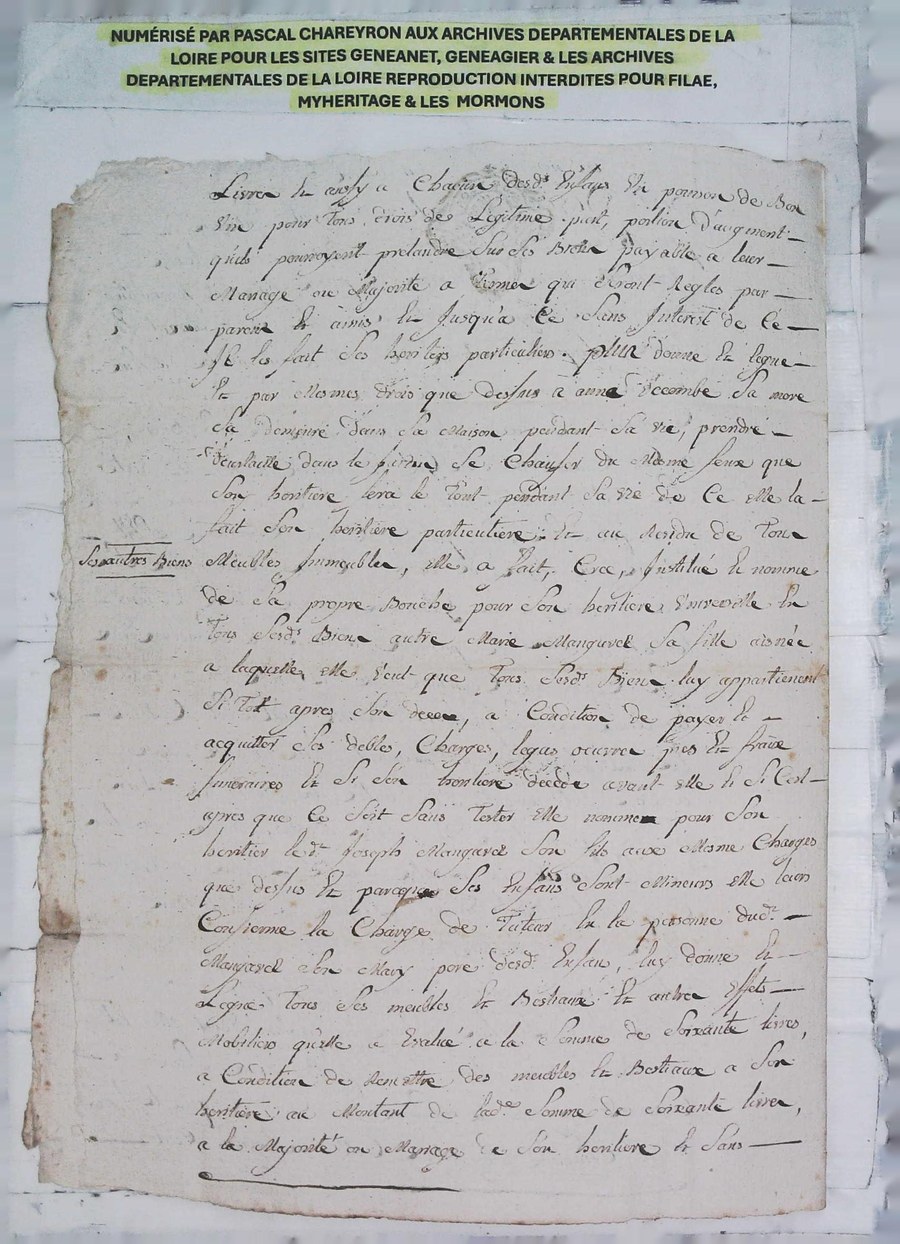 NUMÉRISÉ PAR PASCAL CHAREYRON AUX ARCHIVES DEPARTEMENTALES DE LA
LOIRE POUR LES SITES GENEANET, GENEAGIER & LES ARCHIVES
DEPARTEMENTALES DE LA LOIRE REPRODUCTION INTERDITES POUR FILAE,
MYHERITAGE & LES MORMONS
Livres Et aussy a Chacun desd.s Enfans Un poinson de Bon
Vin pour Tous drois de Legitime part, portion d'augment
qu'ils pourroyent pretandre Sur Ses Biens payable a leur
Mariage ou Majorité a Termes qui seront Regles par
parens Et amis Et Jusqu'a Ce Sans Interest de Ce
Il les fait Ses heritiers particuliers. plus donne Et legue
Et par Mesmes drois que dessus a anne Sa mere
Sa demeure dans Sa Maison pendant Sa vie, prendre
dans le Se Chaufer du Mesme feux que
Son heritiere fera le Tout pendant Sa vie de Ce elle la
fait Son heritiere particuliere. Et au Residu de Tous
Ses autres Biens Meubles Immeubles, elle a fait, Cree, Institué Et nommé
de Sa propre Bouche pour Son heritiere Universelle En
Tous Sesd.s Biens autre Marie Mangarel Sa fille aisnée
a laquelle elle Veut que Tous Sesd.s Biens luy appartienent
Si Tost apres Son deces, a Condition de payer Et
acquitter Ses debtes, Charges, legas oeuvres pies Et fraix
funeraires Et Si Son heritiere decede avant elle Et Si C'est
apres que Ce Soit Sans Tester elle nomme pour Son
heritier led.t Joseph Mangarel Son fils aux Mesme Charges
que dessus Et parceque Ses Enfans Sont Mineurs elle leurs
Confirme la Charge de Tuteur En la personne dud.t
Mangarel Son Mary pere desd.s Enfans, luy donne Et
Legue Tous Ses meubles Et Bestiaux Et autres Effets
Mobiliers qu'elle a Evalué a la Somme de Soixante livres,
a Condition de Remettre des meubles Et Bestiaux a Son
heritiere au Montant de lad.e Somme de Soixante livres,
a la Majorité ou Mariage de Son heritiere Et Sans